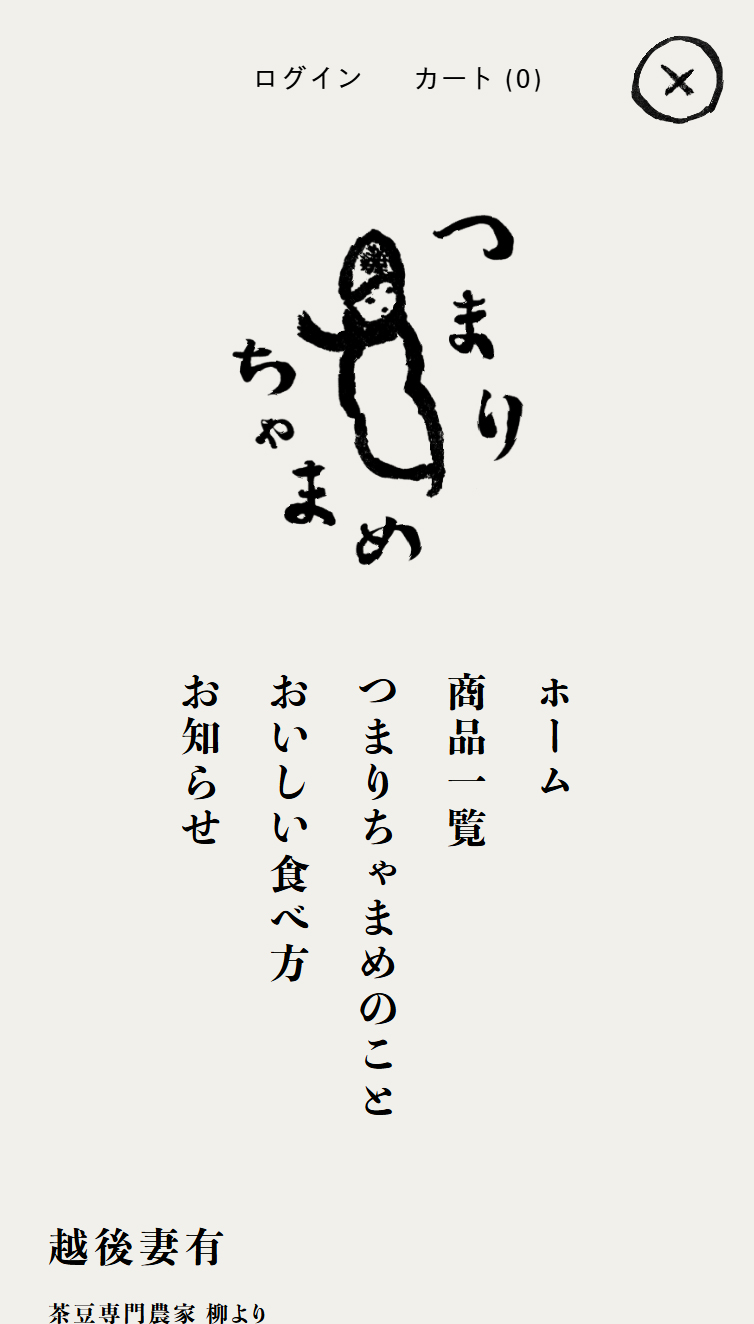 ログイン
カート (0)
つまり
ちゃまめ
ホーム
商品一覧
つまりちゃまめのこと
おいしい食べ方
お知らせ
越後妻有
茶豆専門農家 柳より